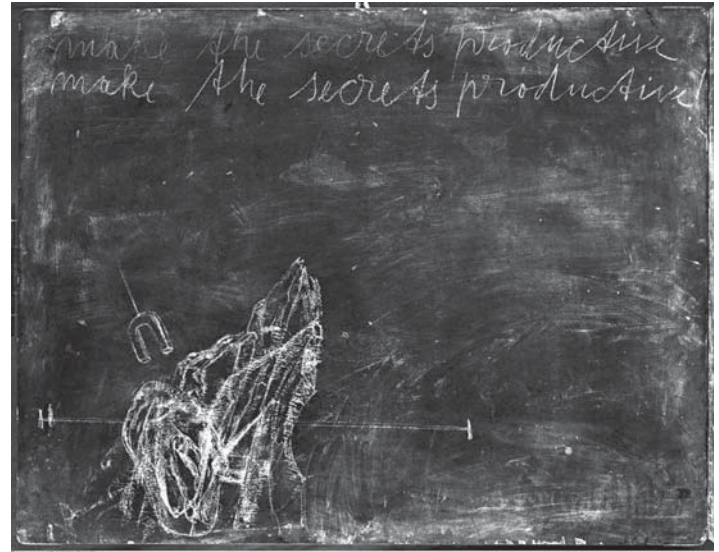 make the secrets productive
make the secrets productive!